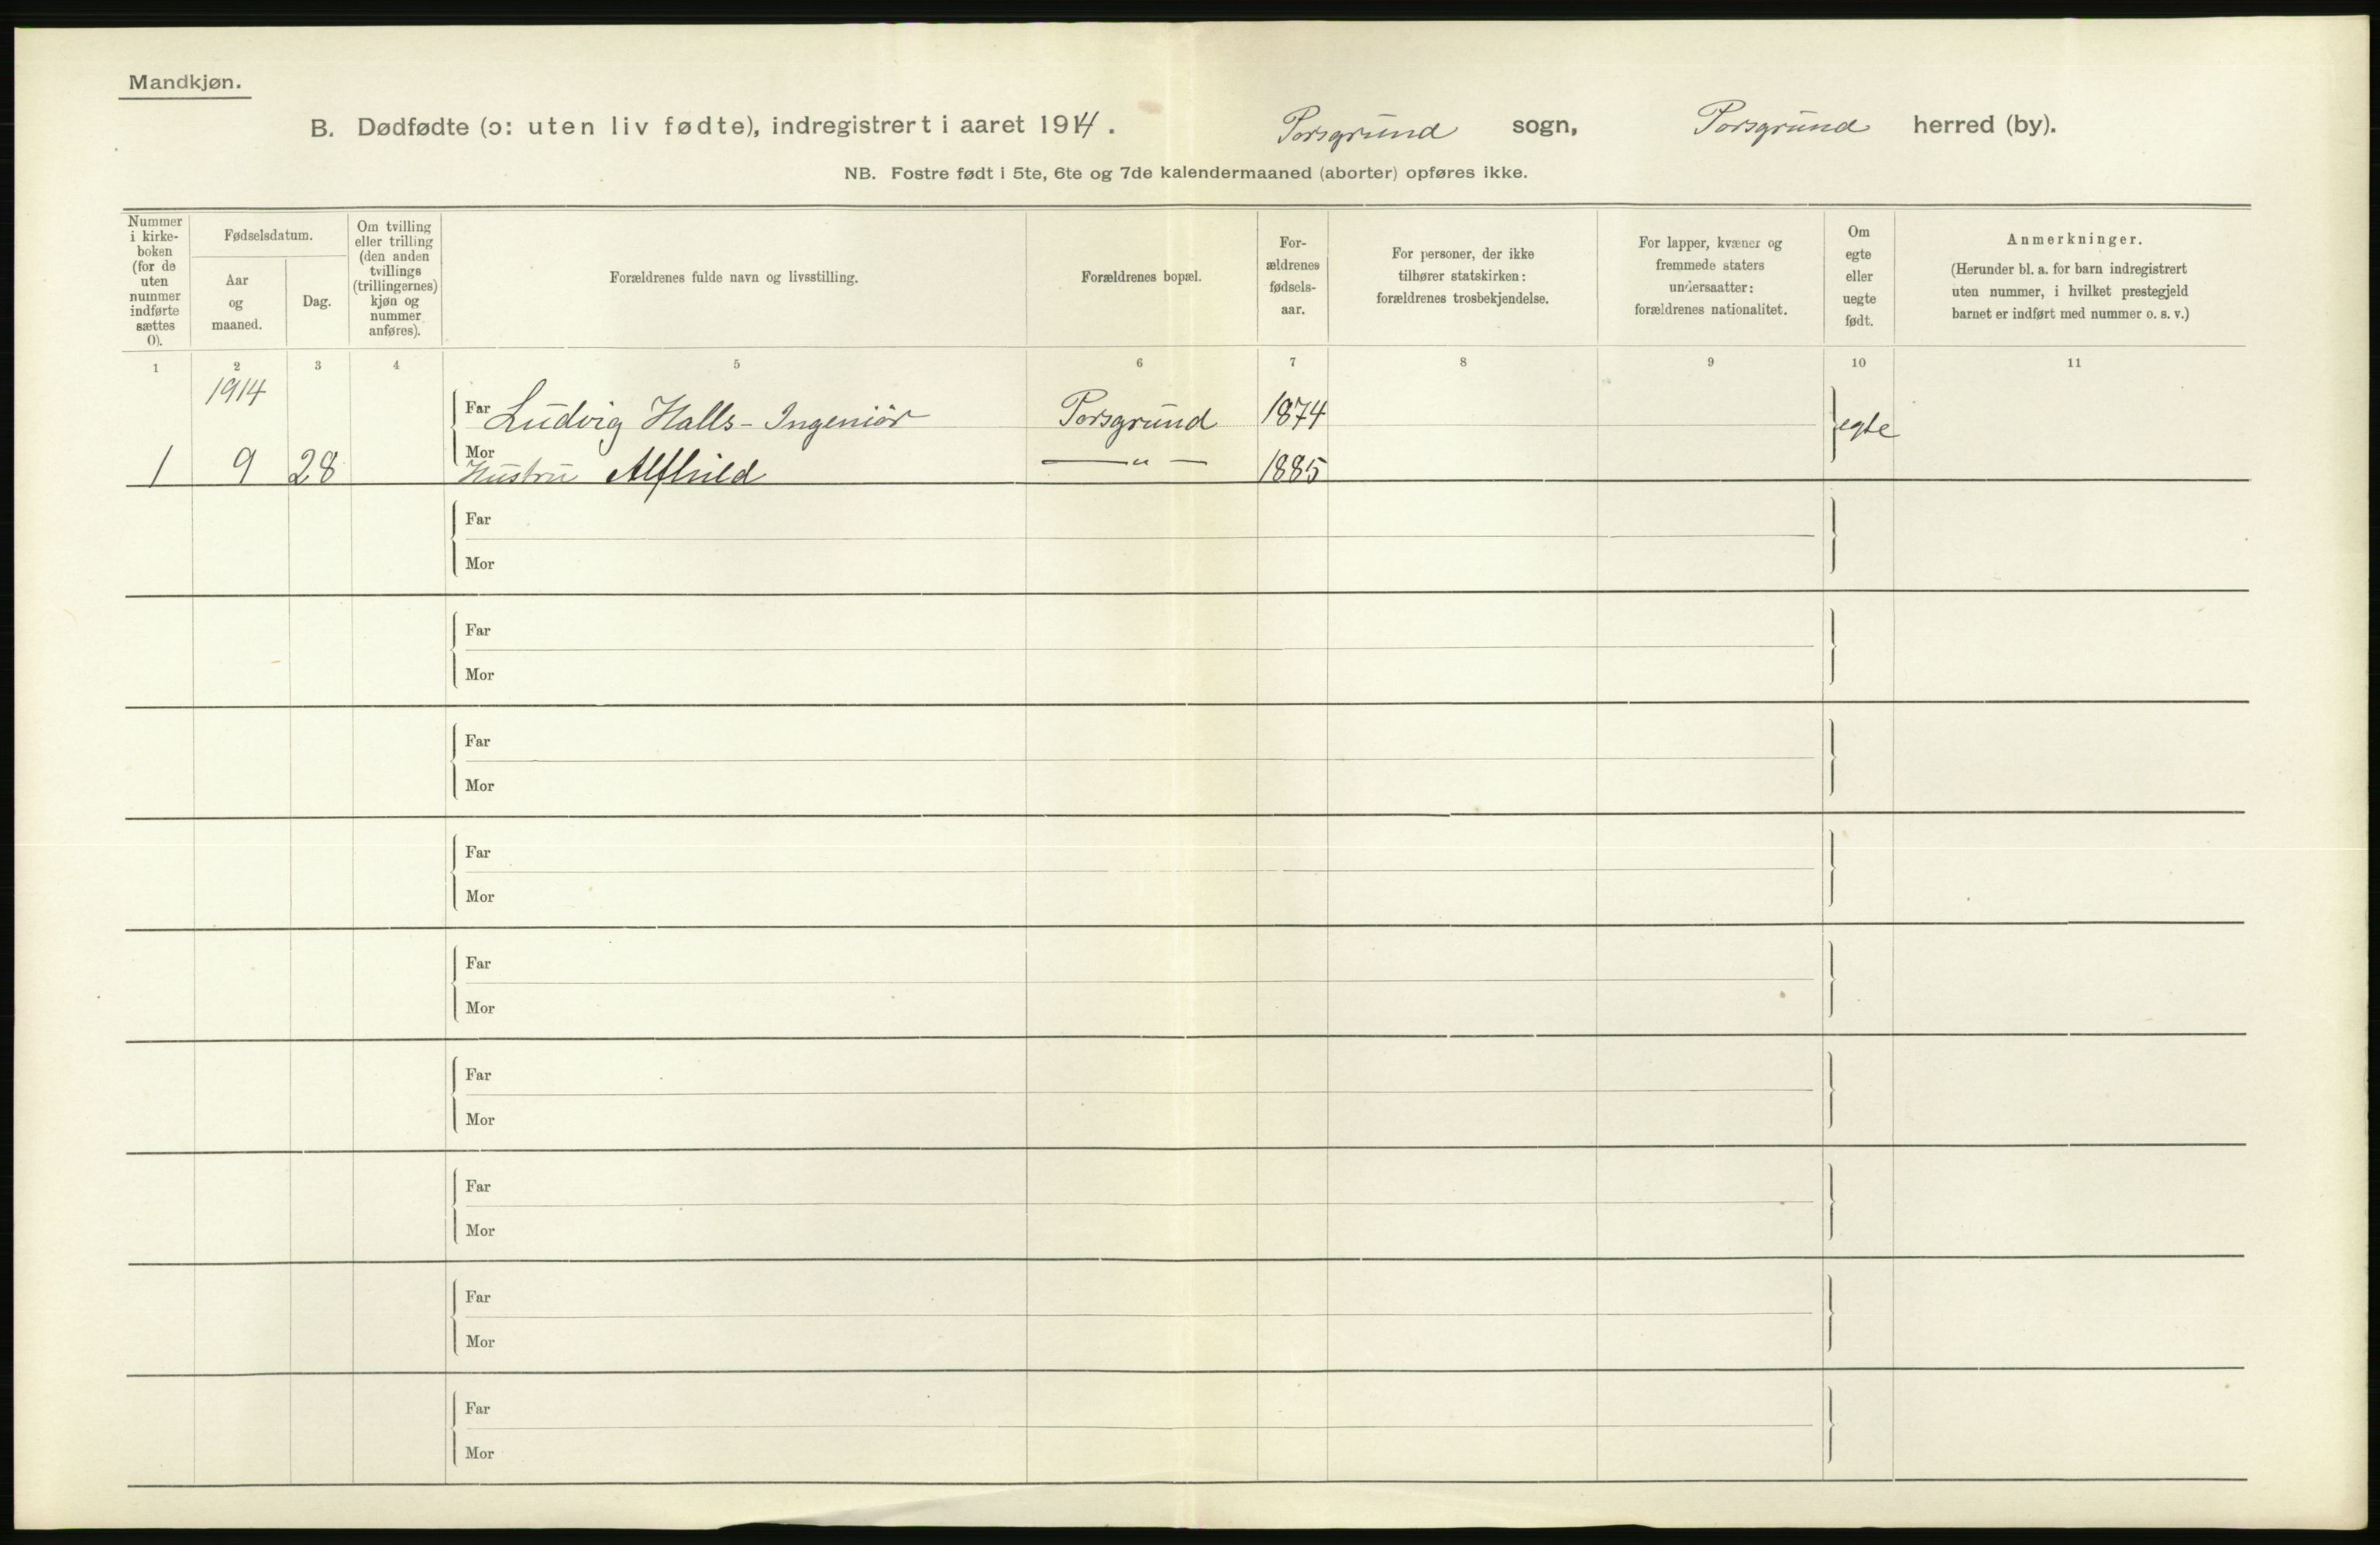 Mandkjøn.
B. Dødfødte (ɔ: uten liv fødte), indregistrert i aaret 1914. Porsgrund sogn, Porsgrund herred (by).
NB. Fostre født i 5te, 6te og 7de kalendermaaned (aborter) opføres ikke.
Nummer
i kirke-
boken
(for de
uten
nummer
indførte
sættes
0).
Fødselsdatum.
Aar
og
maaned.
Dag.
Om tvilling
eller trilling
(den anden
tvillings
(trillingernes)
kjøn og
nummer
anføres).
Forældrenes fulde navn og livsstilling.
Forældrenes bopæl.
For-
ældrenes
fødsels-
aar.
For personer, der ikke
tilhører statskirken:
forældrenes trosbekjendelse.
For lapper, kvæner og
fremmede staters
undersaatter:
forældrenes nationalitet.
Om
egte
eller
uegte
født.
Anmerkninger.
(Herunder bl. a. for barn indregistrert
uten nummer, i hvilket prestegjeld
barnet er indført med nummer o. s. v.)
1 2 3 4 5 6 7 8 9 10 11
1914
Far Ludvig Halls - Ingeniör Porsgrund 1874 egte
Mor
1 9 28 Hustru Alfhild — " — 1885
Far
Mor
Far
Mor
Far
Mor
Far
Mor
Far
Mor
Far
Mor
Far
Mor
Far
Mor
Far
Mor